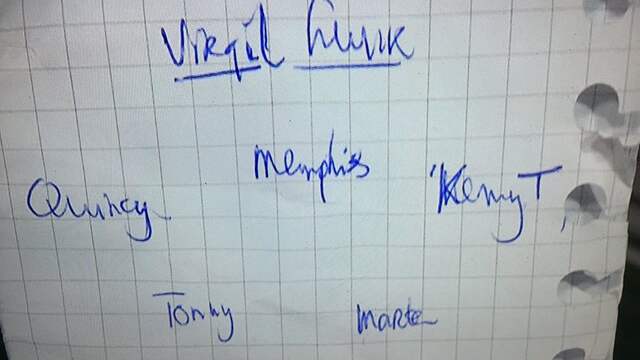 Virgil Luuk
Memphis
Quincy 'Kenny T,
Tonny Marten